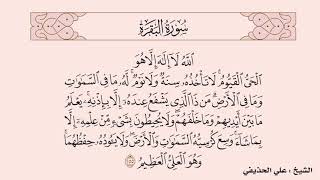 سُورَةُ البَقَرَةِ
ٱللَّهُ لَآ إِلَٰهَ إِلَّا هُوَ
ٱلْحَىُّ ٱلْقَيُّومُ ۚ لَا تَأْخُذُهُۥ سِنَةٌ وَلَا نَوْمٌ ۚ لَّهُۥ مَا فِى ٱلسَّمَٰوَٰتِ
وَمَا فِى ٱلْأَرْضِ ۗ مَن ذَا ٱلَّذِى يَشْفَعُ عِندَهُۥٓ إِلَّا بِإِذْنِهِۦ ۚ يَعْلَمُ
مَا بَيْنَ أَيْدِيهِمْ وَمَا خَلْفَهُمْ ۖ وَلَا يُحِيطُونَ بِشَىْءٍ مِّنْ عِلْمِهِۦٓ إِلَّا
بِمَا شَآءَ ۚ وَسِعَ كُرْسِيُّهُ ٱلسَّمَٰوَٰتِ وَٱلْأَرْضَ ۖ وَلَا يَـُٔودُهُۥ حِفْظُهُمَا ۚ
وَهُوَ ٱلْعَلِىُّ ٱلْعَظِيمُ ٢٥٥
الشيخ : علي الحذيفي